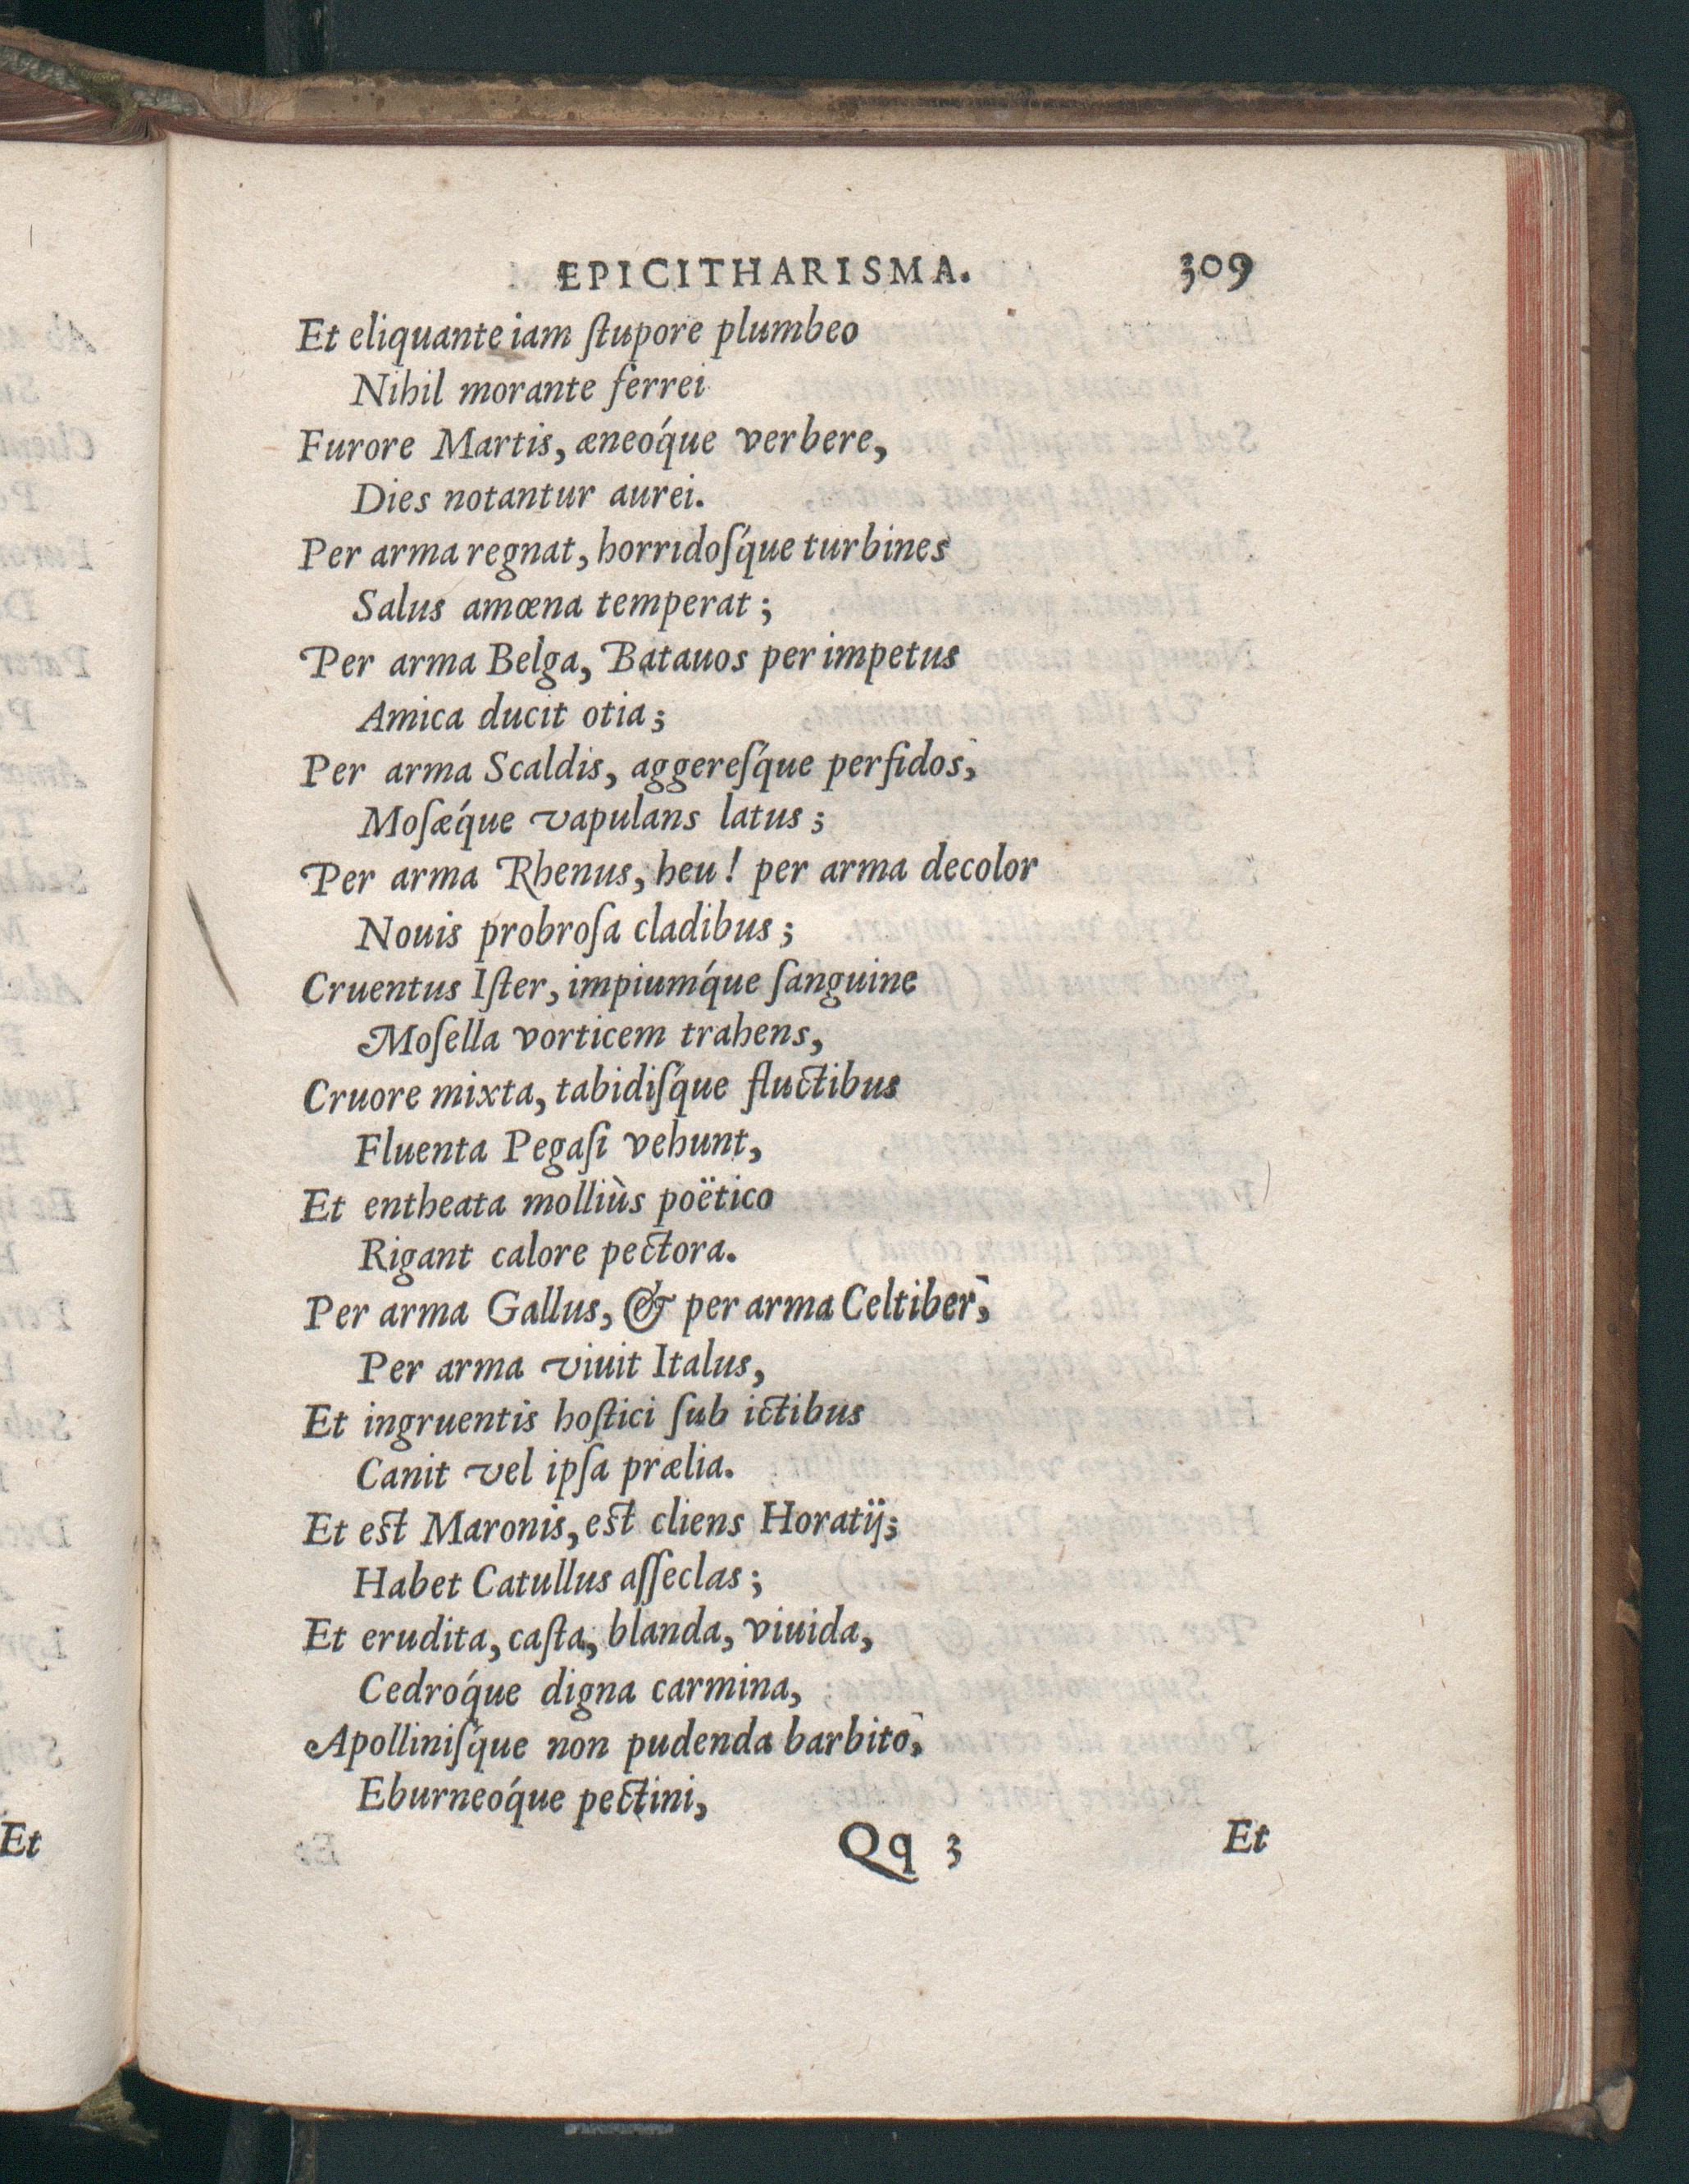 EPICITHARISMA. 309
Et eliquante iam ſtupore plumbeo
Nihil morante ferrei
Furore Martis, æneóque verbere,
Dies notantur aurei.
Per arma regnat, horridoſq́ue turbines
Salus amœna temperat;
Per arma Belga, Batauos per impetus
Amica ducit otia;
Per arma Scaldis, aggereſq́ue perfidos,
Moſæq́ue vapulans latus;
Per arma Rhenus, heu! per arma decolor
Nouis probroſa cladibus;
Cruentus Iſter, impiumq́ue ſanguine
Moſella vorticem trahens,
Cruore mixta, tabidiſq́ue fluctibus
Fluenta Pegaſi vehunt,
Et entheata molliùs poëtico
Rigant calore pectora.
Per arma Gallus, & per arma Celtiber,
Per arma viuit Italus,
Et ingruentis hoſtici ſub ictibus
Canit vel ipſa prælia.
Et est Maronis, est cliens Horatij;
Habet Catullus aſſeclas;
Et erudita, caſta, blanda, viuida,
Cedróque digna carmina,
Apolliniſq́ue non pudenda barbito,
Eburneóque pectini,
Et
Qq 3 Et